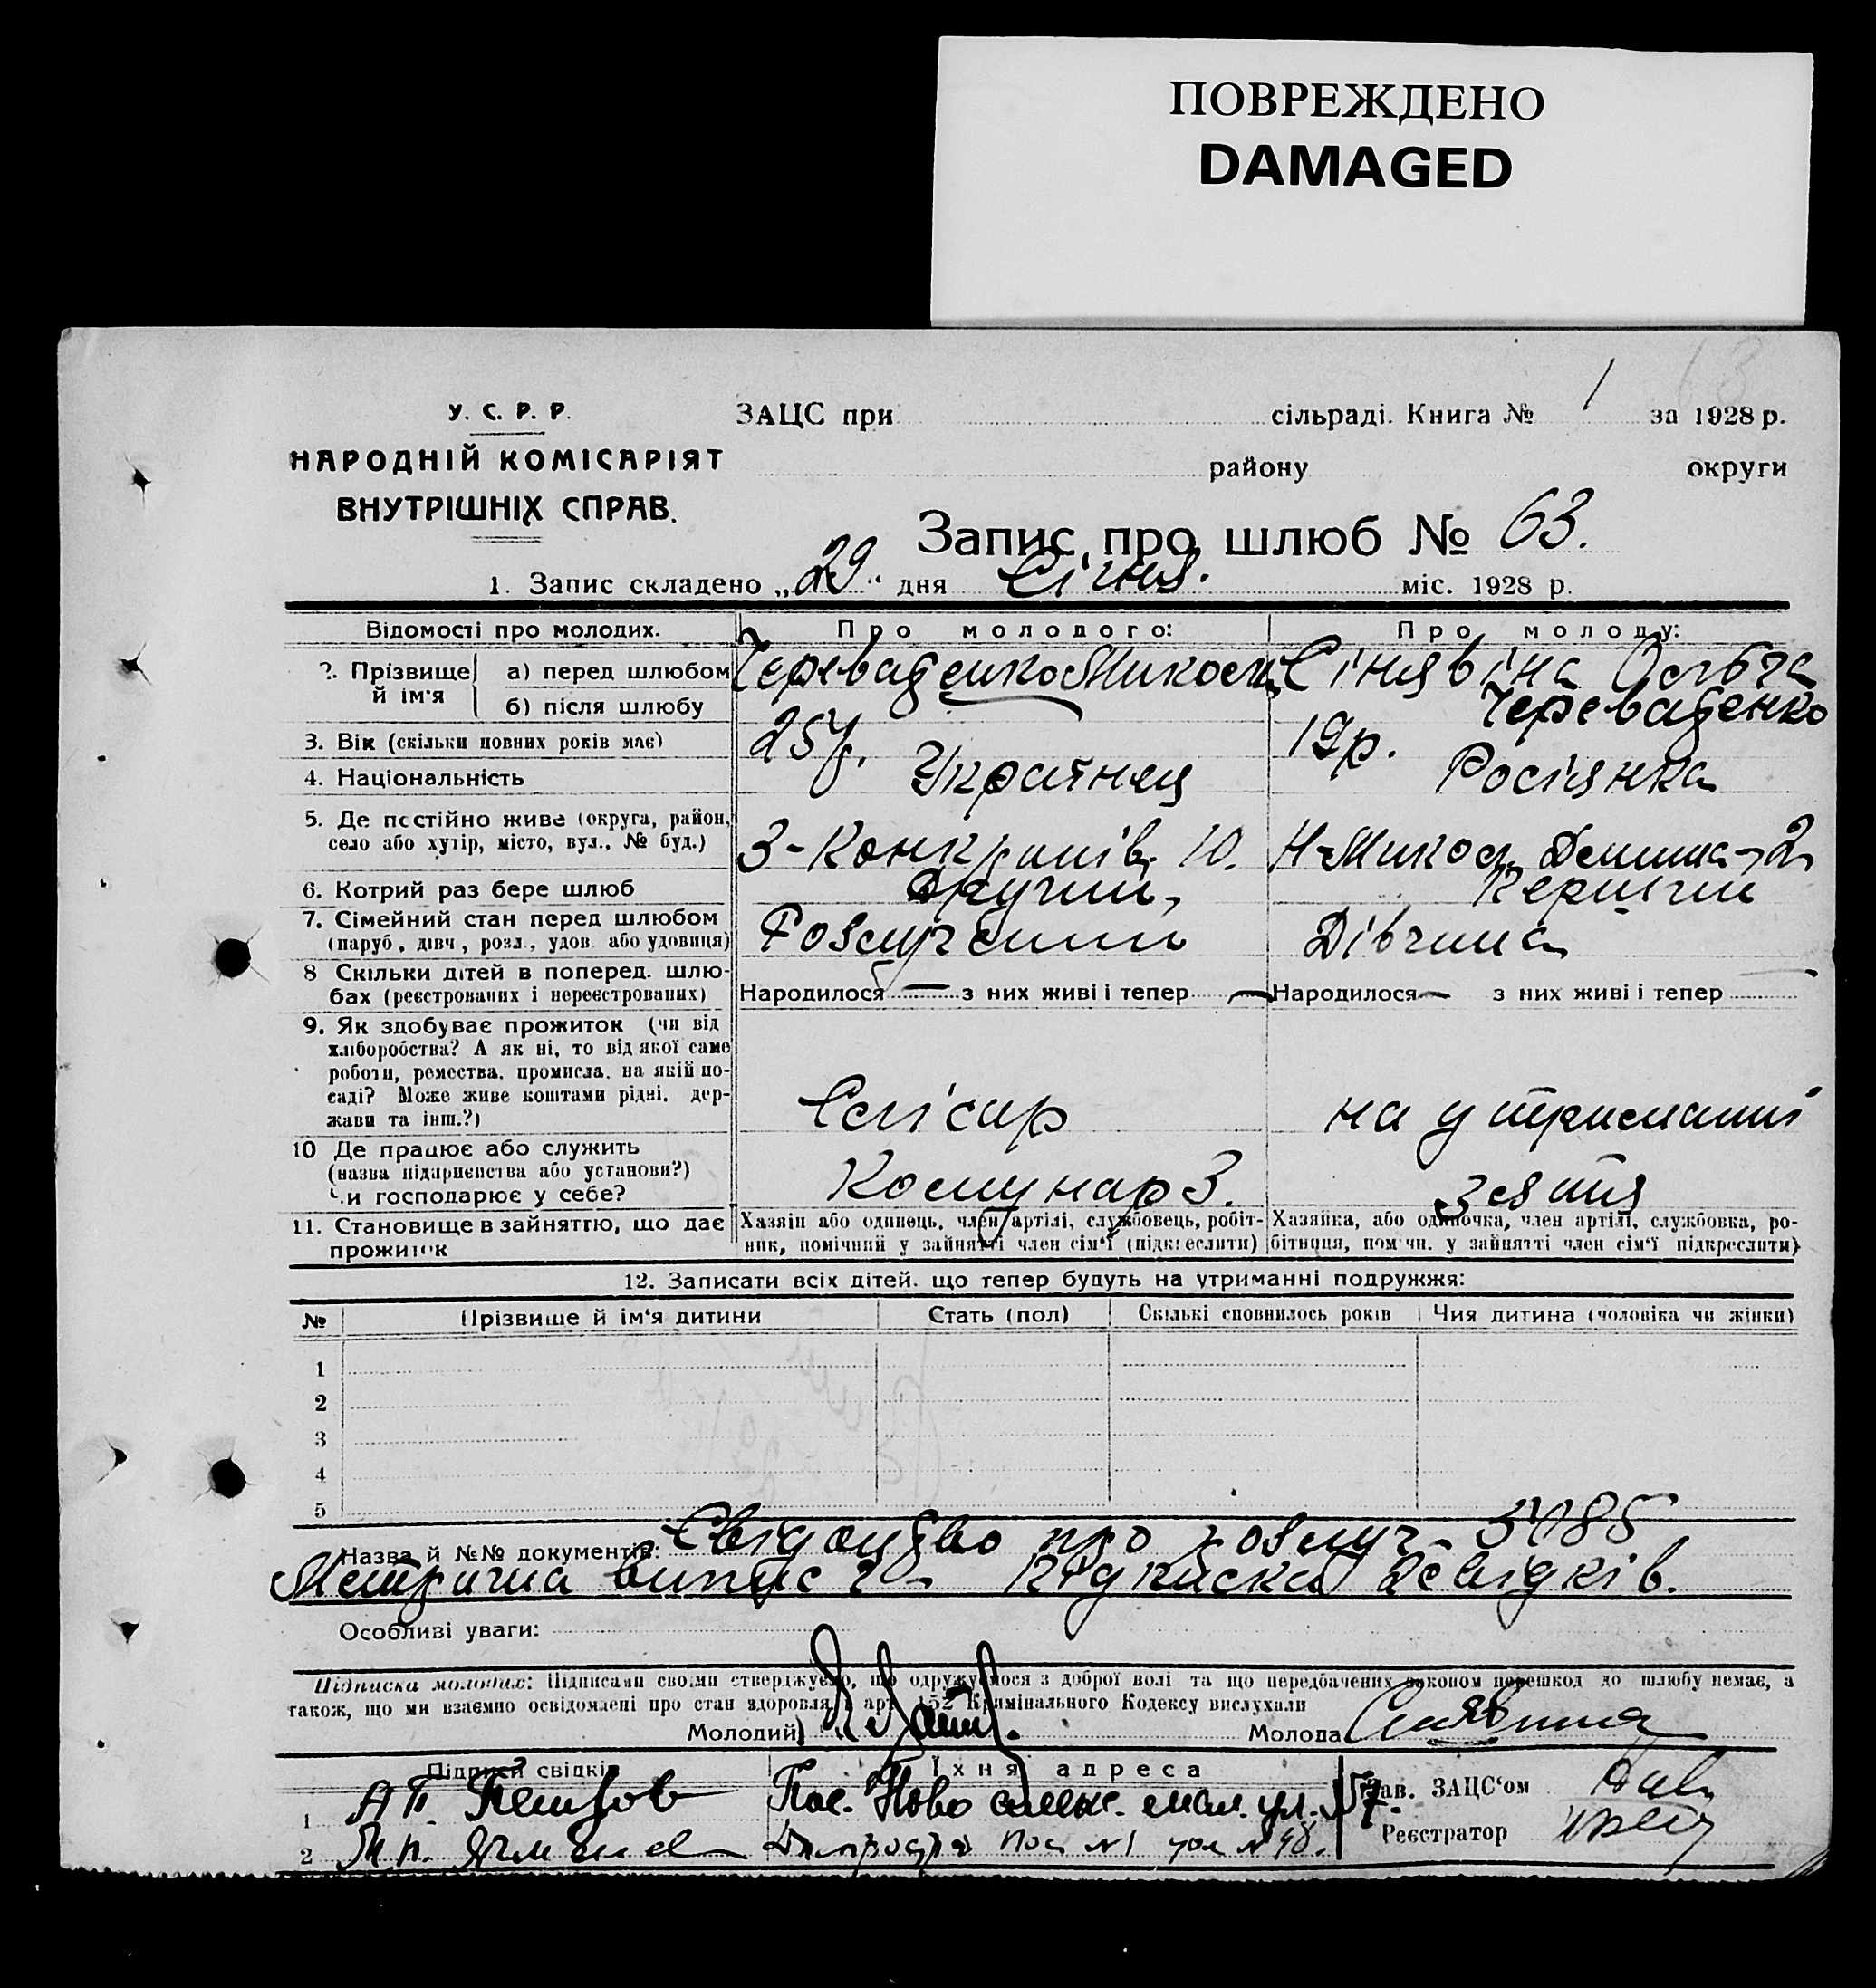 ПОВРЕЖДЕНО
DAMAGED
У. С. Р. Р.
НАРОДНІЙ КОМІСАРІЯТ
ВНУТРІШНІХ СПРАВ.
ЗАЦС при сільраді. Книга № 1 за 1928 р.
району округи
Запис про шлюб № 63.
1. Запис складено „29“ дня Січня. міс. 1928 р.
Відомості про молодих. Про молодого: Про молоду:
2. Прізвище й ім'я а) перед шлюбом Черевашенко Микола Сінявіна Ольга
б) після шлюбу Черевашенко
3. Вік (скільки повних років має) 25 р. 19 р.
4. Національність Українец Росіянка
5. Де постійно живе (округа, район, село або хутір, місто, вул., № буд.) 10. Н-Микол. 2
6. Котрий раз бере шлюб Другий, Перший
7. Сімейний стан перед шлюбом (паруб., дівч., розл., удов. або удовиця) Розлучений Дівчина
8 Скільки дітей в поперед. шлюбах (реєстрованих і нереєстрованих) Народилося — з них живі і тепер — Народилося — з них живі і тепер
9. Як здобуває прожиток (чи від хліборобства? А як ні, то від якої саме роботи, ремества, промисла, на якій посаді? Може живе коштами рідні, держави та інш.?) Слісар на утриманні
10 Де працює або служить (назва підприємства або установи?) Чи господарює у себе? Комунар З. зятя
11. Становище в зайняттю, що дає прожиток
Хазяін або одинець, член артілі, службовець, робітник, помічний у зайнятті член сім'ї (підкреслити)
Хазяйка, або одиночка, член артілі, службовка, робітниця, помічн. у зайнятті член сім'ї підкреслити)
12. Записати всіх дітей, що тепер будуть на утриманні подружжя:
№ Прізвище й ім'я дитини Стать (пол) Скількі сповнилось років Чия дитина (чоловіка чи жінки)
1
2
3
4
5
Назва й №№ документів: Свідоцтво про розлуч.
Метрична випис Підписка свідків.
Особливі уваги:
Підписка молодих: Підписами своїми стверджуємо, що одружуємося з доброї волі та що передбачених законом перешкод до шлюбу немає, а
також, що ми взаємно освідомлені про стан здоровля і арт. 152 Кримінального Кодексу вислухали
Молодий Молода Синявина
Підписи свідків Їхня адреса
1 А П. Петров Пос. Ново ул. 57. Зав. ЗАЦС'ом
2 пос №1 Реєстратор